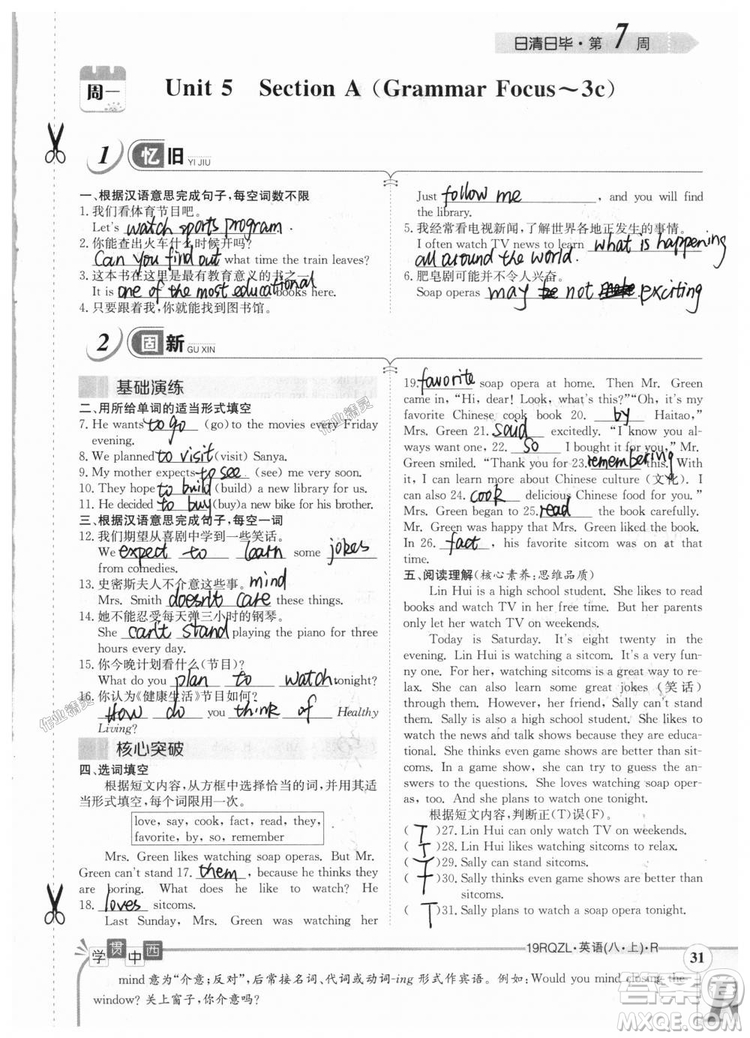 日清日毕·第7周
周一
Unit 5 Section A (Grammar Focus~3c)
1 忆旧 YI JIU
一、根据汉语意思完成句子,每空词数不限
1. 我们看体育节目吧。
Let's watch sports program.
2. 你能查出火车什么时候开吗?
Can you find out what time the train leaves?
3. 这本书在这里是最有教育意义的书之一。
It is one of the most educational books here.
4. 只要跟着我,你就会找到图书馆。
Just follow me, and you will find
the library.
5. 我经常看电视新闻,了解世界各地正发生的事情。
I often watch TV news to learn what is happening
all around the world.
6. 肥皂剧可能并不令人兴奋。
Soap operas may be not exciting
2 固新 GU XIN
基础演练
二、用所给单词的适当形式填空
7. He wants to go (go) to the movies every Friday
evening.
8. We planned to visit (visit) Sanya.
9. My mother expects to see (see) me.
10. They hope to build (build) a new library for us.
11. He decided to buy (buy) a new bike for his brother.
三、根据汉语意思完成句子,每空一词
12. 我们期望从喜剧中学到一些笑话。
We expect to learn some jokes
from comedies.
13. 史密斯夫人不介意这些事。 mind
Mrs. Smith doesn't care these things.
14. 她不能忍受每天弹三小时的钢琴。
She can't stand playing the piano for three
hours every day.
15. 你今晚计划看什么(节目)?
What do you plan to watch tonight?
16. 你认为《健康生活》节目如何?
How do you think of Healthy
Living?
核心突破
四、选词填空
根据短文内容,从方框中选择恰当的词,并用其适
当形式填空,每个词限用一次。
love, say, cook, fact, read, they,
favorite, by, so, remember
Mrs. Green likes watching soap operas. But Mr.
Green can't stand 17. them, because he thinks they
are boring. What does he like to watch? He
18. loves sitcoms.
Last Sunday, Mrs. Green was watching her
19. favorite soap opera at home. Then Mr. Green
came in, “Hi, dear! Look, what's this?”“Oh, it's my
favorite Chinese cook book 20. by Haitao,”
Mrs. Green 21. said excitedly. “I know you
always want one. 22. so I bought it for you,” Mr.
Green smiled. “Thank you for 23. remembering this. With
it, I can learn more about Chinese culture (文化). I
can also 24. cook delicious Chinese food for you.”
Mrs. Green began to 25. read the book carefully.
Mr. Green was happy that Mrs. Green liked the book.
In 26. fact, his favorite sitcom was on at that time.
五、阅读理解(核心素养:思维品质)
Lin Hui is a high school student. She likes to read
books and watch TV in her free time. But her parents
only let her watch TV on weekends.
Today is Saturday. It's eight twenty in the
evening. Lin Hui is watching a sitcom. She is funny
and enjoys it. For her, watching sitcoms is a great way to re-
lax. And she can learn some great jokes (笑话)
through them. However, her friend, Sally can't stand
sitcoms. Sally is also a high school student. She likes
news and talk shows. She thinks they are education-
al. She thinks even game shows are better than sit-
coms. Sometimes, she also likes watching soap oper-
as. And she plans to watch one tonight.
根据短文内容,判断正(T)误(F)。
( T )27. Lin Hui can only watch TV on weekends.
( T )28. Lin Hui likes watching sitcoms to relax.
( )29. Sally can stand sitcoms.
( T )31. Sally plans to watch soap operas tonight.
19RQZL·英语(八·上)·R
31
学贯中西
mind 意为“介意;反对”,后常接名词、代词或动词-ing 形式作宾语。例如:Would you mind closing the
window? 关上窗子,你介意吗?
作业精灵
MXQE.COM